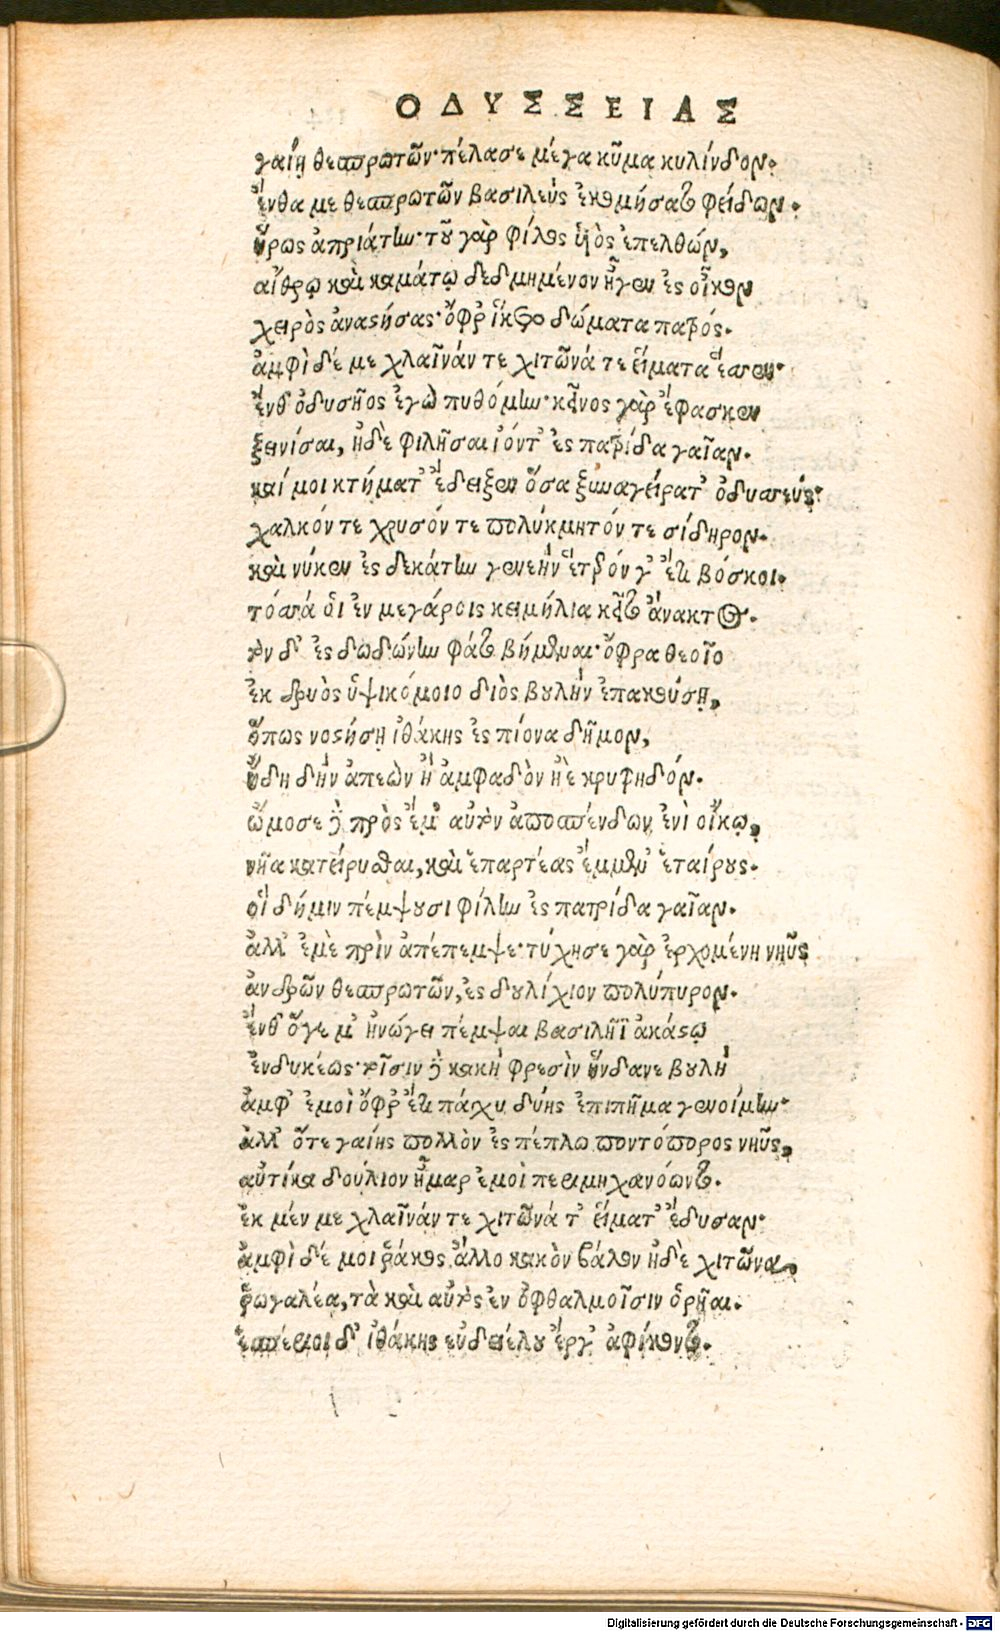 ΟΔΥΣΣΕΙΑΣ
γαίῃ θεσπρωτῶν· πέλασε μέγα κῦμα κυλίνδον·
ἔνθα με θεσπρωτῶν βασιλεὺς ἐκομήσατο φείδων·
ἥρως ἀπριάτην· τοῦ γὰρ φίλος υἱὸς ἐπελθών,
αἴθρῳ καὶ καμάτῳ δεδμημένον ἦγεν ἐς οἶκον
χειρὸς ἀναστήσας· ὄφρ' ἵκετο δώματα πατρός·
ἀμφὶ δέ με χλαῖνάν τε χιτῶνά τε εἵματα ἕσσεν·
ἔνθ' ὀδυσῆος ἐγὼ πυθόμην· κεῖνος γὰρ ἔφασκεν
ξεινίσαι, ἠδὲ φιλῆσαι ἰόντ' ἐς πατρίδα γαῖαν·
καί μοι κτήματ' ἔδειξεν ὅσα ξυναγείρατ' ὀδυσσεύς·
χαλκόν τε χρυσόν τε πολύκμητόν τε σίδηρον·
καὶ νύκεν ἐς δεκάτην γενεὴν ἕτερόν γ' ἔτι βόσκοι·
τόσσά οἱ ἐν μεγάροις κειμήλια κεῖτο ἄνακτος·
τὸν δ' ἐς δωδώνην φάτο βήμεναι· ὄφρα θεοῖο
ἐκ δρυὸς ὑψικόμοιο διὸς βουλὴν ἐπακούσῃ,
ὅπως νοστήσῃ ἰθάκης ἐς πίονα δῆμον,
ἤδη δὴν ἀπεὼν ἢ ἀμφαδὸν ἠὲ κρυφηδόν·
ὤμοσε δὲ πρὸς ἔμ' αὐτὸν ἀποσπένδων ἐνὶ οἴκῳ,
νῆα κατείρυσθαι, καὶ ἐπαρτέας ἔμμεν' ἑταίρους·
οἳ δήμιν πέμψουσι φίλην ἐς πατρίδα γαῖαν·
ἀλλ' ἐμὲ πρὶν ἀπέπεμψε· τύχησε γὰρ ἐρχομένη νηῦς
ἀνδρῶν θεσπρωτῶν, ἐς δουλίχιον πολύπυρον·
ἔνθ' ὅγε μ' ἠνώγει πέμψαι βασιλῆϊ ἀκάστῳ
ἐνδυκέως· τοῖσιν δὲ κακὴ φρεσὶν ἥνδανε βουλὴ
ἀμφ' ἐμοὶ ὄφρ' ἔτι πάχυ δύης ἐπιπῆμα γενοίμην·
ἀλλ' ὅτε γαίης πολλὸν ἐς πέπλω ποντόπορος νηῦς,
αὐτίκα δούλιον ἦμαρ ἐμοὶ περιμηχανόωντο·
ἐκ μέν με χλαῖνάν τε χιτῶνά τ' εἵματ' ἔδυσαν·
ἀμφὶ δέ μοι ῥάκος ἄλλο κακὸν βάλον ἠδὲ χιτῶνα,
ῥωγαλέα, τὰ καὶ αὐτὸς ἐν ὀφθαλμοῖσιν ὅρηαι·
ἑσπέριοι δ' ἰθάκης εὐδειέλου ἔργ' ἀφίκοντο·
Digitalisierung gefördert durch die Deutsche Forschungsgemeinschaft - DFG